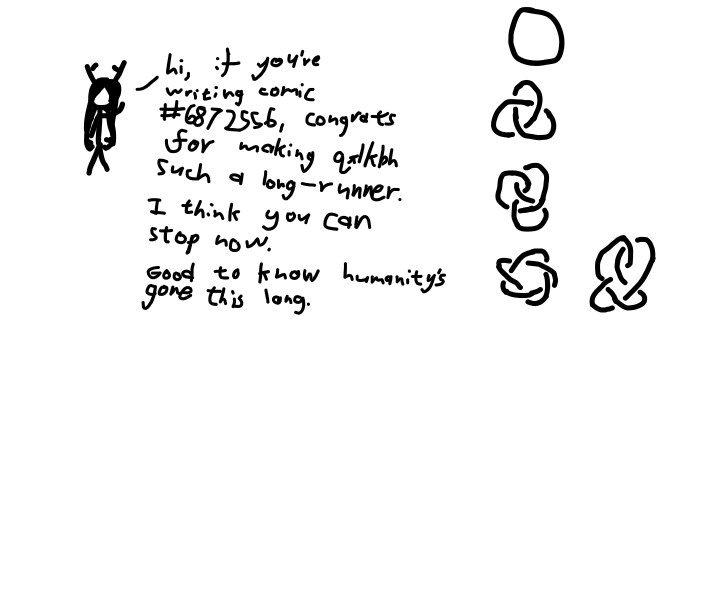 hi, if you're
writing comic
#6872556, congrats
for making qxlkbh
such a long-runner.
I think you can
stop now.
Good to know humanity's
gone this long.